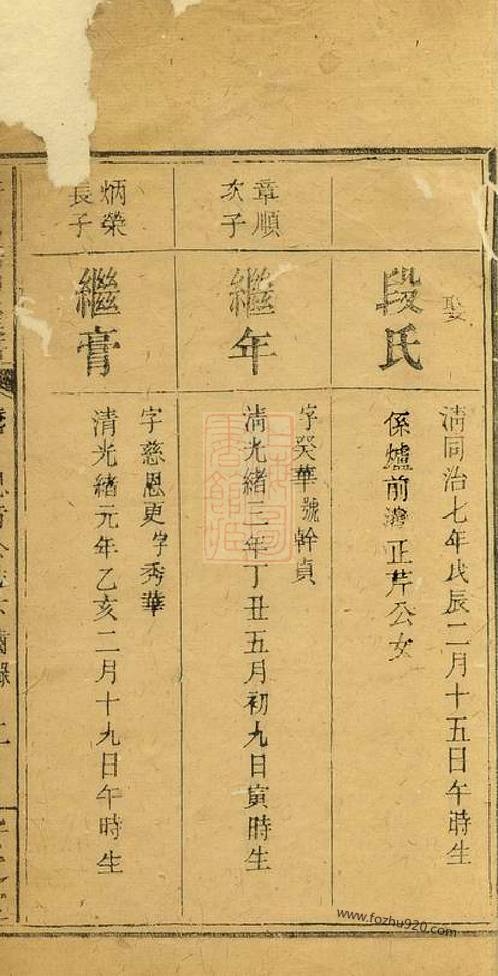 娶
段氏
清同治七年戊辰二月十五日午時生
係爐前灣正芹公女
章順
次子
繼年
字癸華號幹貞
清光緒三年丁丑五月初九日寅時生
炳榮
長子
繼膏
字慈恩更字秀華
清光緒元年乙亥二月十九日午時生
www.fozhu920.com